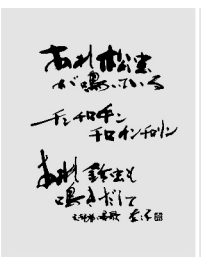 あれ松虫
が鳴いている
チンチロチン
チロチンチロリン
あれ鈴虫も
鳴きだして